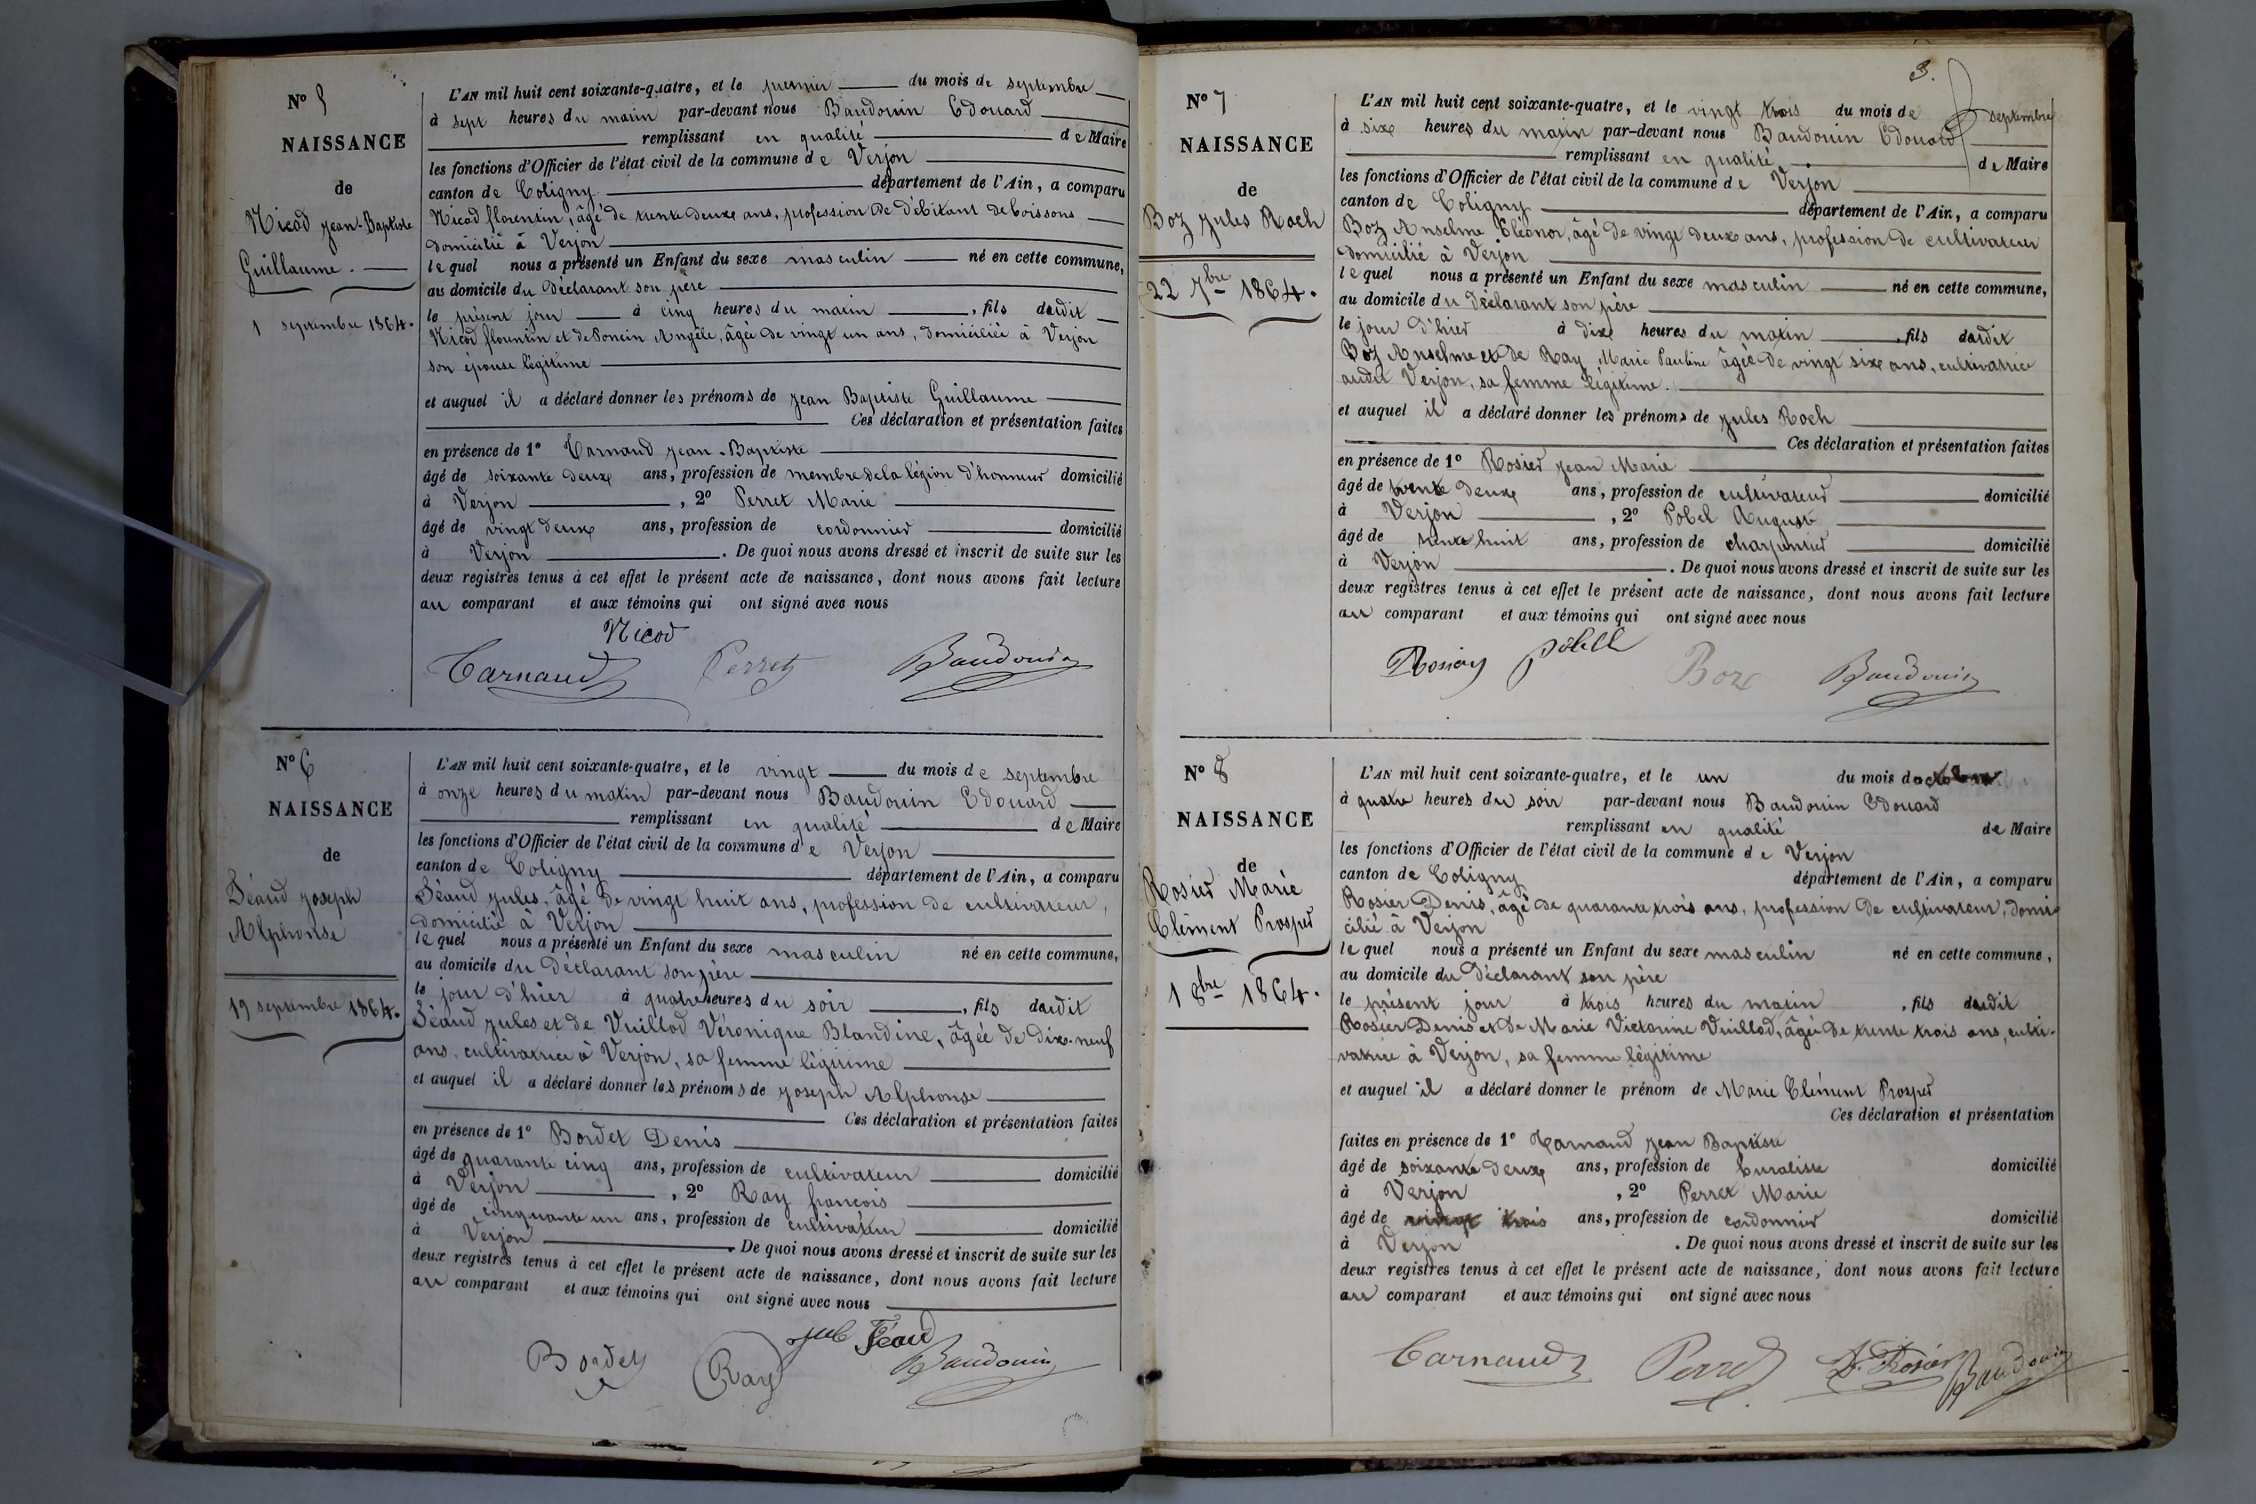 N° 5
NAISSANCE
de
Nicod Jean-Baptiste
Guillaume.
1 septembre 1864.
L'AN mil huit cent soixante-quatre, et le premier du mois de septembre
à sept heures du matin par-devant nous Baudouin Edouard
remplissant en qualité de Maire
les fonctions d'Officier de l'état civil de la commune de Verjon
canton de Coligny département de l'Ain, a comparu
Nicod florentin, âgé de trente deux ans, profession de débitant de boissons
domicilié à Verjon
lequel nous a présenté un Enfant du sexe masculin né en cette commune,
au domicile du déclarant son père
le présent jour à cinq heures du matin, fils dudit
Nicod florentin et de Poncin Angèle, âgée de vingt un ans, domiciliée à Verjon
son épouse légitime
et auquel il a déclaré donner les prénoms de Jean Baptiste Guillaume
Ces déclaration et présentation faites
en présence de 1° Carnaud Jean-Baptiste
âgé de soixante deux ans, profession de membre de la légion d'honneur domicilié
à Verjon, 2° Perret Marie
âgé de vingt deux ans, profession de cordonnier domicilié
à Verjon. De quoi nous avons dressé et inscrit de suite sur les
deux registres tenus à cet effet le présent acte de naissance, dont nous avons fait lecture
au comparant et aux témoins qui ont signé avec nous
Nicod
Carnaud Perret Baudouin
N° 6
NAISSANCE
de
Féaud Joseph
Alphonse
19 septembre 1864.
L'AN mil huit cent soixante-quatre, et le vingt du mois de septembre
à onze heures du matin par-devant nous Baudouin Edouard
remplissant en qualité de Maire
les fonctions d'Officier de l'état civil de la commune de Verjon
canton de Coligny département de l'Ain, a comparu
Féaud Jules, âgé de vingt huit ans, profession de cultivateur,
domicilié à Verjon
lequel nous a présenté un Enfant du sexe masculin né en cette commune,
au domicile du déclarant son père
le jour d'hier à quatre heures du soir, fils dudit
Féaud Jules et de Vuillod Véronique Blandine, âgée de dix-neuf
ans, cultivatrice à Verjon, sa femme légitime
et auquel il a déclaré donner les prénoms de Joseph Alphonse
Ces déclaration et présentation faites
en présence de 1° Bordet Denis
âgé de quarante cinq ans, profession de cultivateur domicilié
à Verjon, 2° Ray françois
âgé de cinquante un ans, profession de cultivateur domicilié
à Verjon. De quoi nous avons dressé et inscrit de suite sur les
deux registres tenus à cet effet le présent acte de naissance, dont nous avons fait lecture
au comparant et aux témoins qui ont signé avec nous
Jule Féaud
Bordet Ray Baudouin
3.
N° 7
NAISSANCE
de
Boz Jules Roch
22 7bre 1864.
L'AN mil huit cent soixante-quatre, et le vingt trois du mois de septembre
à six heures du matin par-devant nous Baudouin Edouard
remplissant en qualité de Maire
les fonctions d'Officier de l'état civil de la commune de Verjon
canton de Coligny département de l'Ain, a comparu
Boz Anselme Eléonor, âgé de vingt deux ans, profession de cultivateur
domicilié à Verjon
lequel nous a présenté un Enfant du sexe masculin né en cette commune,
au domicile du déclarant son père
le jour d'hier à dix heures du matin, fils dudit
Boz Anselme et de Ray Marie Pauline âgée de vingt six ans, cultivatrice
audit Verjon, sa femme légitime.
et auquel il a déclaré donner les prénoms de Jules Roch
Ces déclaration et présentation faites
en présence de 1° Rosier Jean Marie
âgé de trente deux ans, profession de cultivateur domicilié
à Verjon, 2° Pobel Auguste
âgé de trente huit ans, profession de charpentier domicilié
à Verjon. De quoi nous avons dressé et inscrit de suite sur les
deux registres tenus à cet effet le présent acte de naissance, dont nous avons fait lecture
au comparant et aux témoins qui ont signé avec nous
Rosier pobel Boz Baudouin
N° 8
NAISSANCE
de
Rosier Marie
Clément Prosper
1 8bre 1864.
L'AN mil huit cent soixante-quatre, et le un du mois doctobre
à quatre heures du soir par-devant nous Baudouin Edouard
remplissant en qualité de Maire
les fonctions d'Officier de l'état civil de la commune de Verjon
canton de Coligny département de l'Ain, a comparu
Rosier Denis, âgé de quarante trois ans, profession de cultivateur, domi-
cilié à Verjon
lequel nous a présenté un Enfant du sexe masculin né en cette commune,
au domicile du déclarant son père
le présent jour à trois heures du matin, fils dudit
Rosier Denis et de Marie Victorine Vuillod, âgée de trente trois ans, culti-
vatrice à Verjon, sa femme légitime
et auquel il a déclaré donner le prénom de Marie Clément Prosper
Ces déclaration et présentation
faites en présence de 1° Carnaud Jean Baptiste
âgé de soixante deux ans, profession de buraliste domicilié
à Verjon, 2° Perret Marie
âgé de vingt trois ans, profession de cordonnier domicilié
à Verjon. De quoi nous avons dressé et inscrit de suite sur les
deux registres tenus à cet effet le présent acte de naissance, dont nous avons fait lecture
au comparant et aux témoins qui ont signé avec nous
Carnaud Perret D. Rosier Baudouin